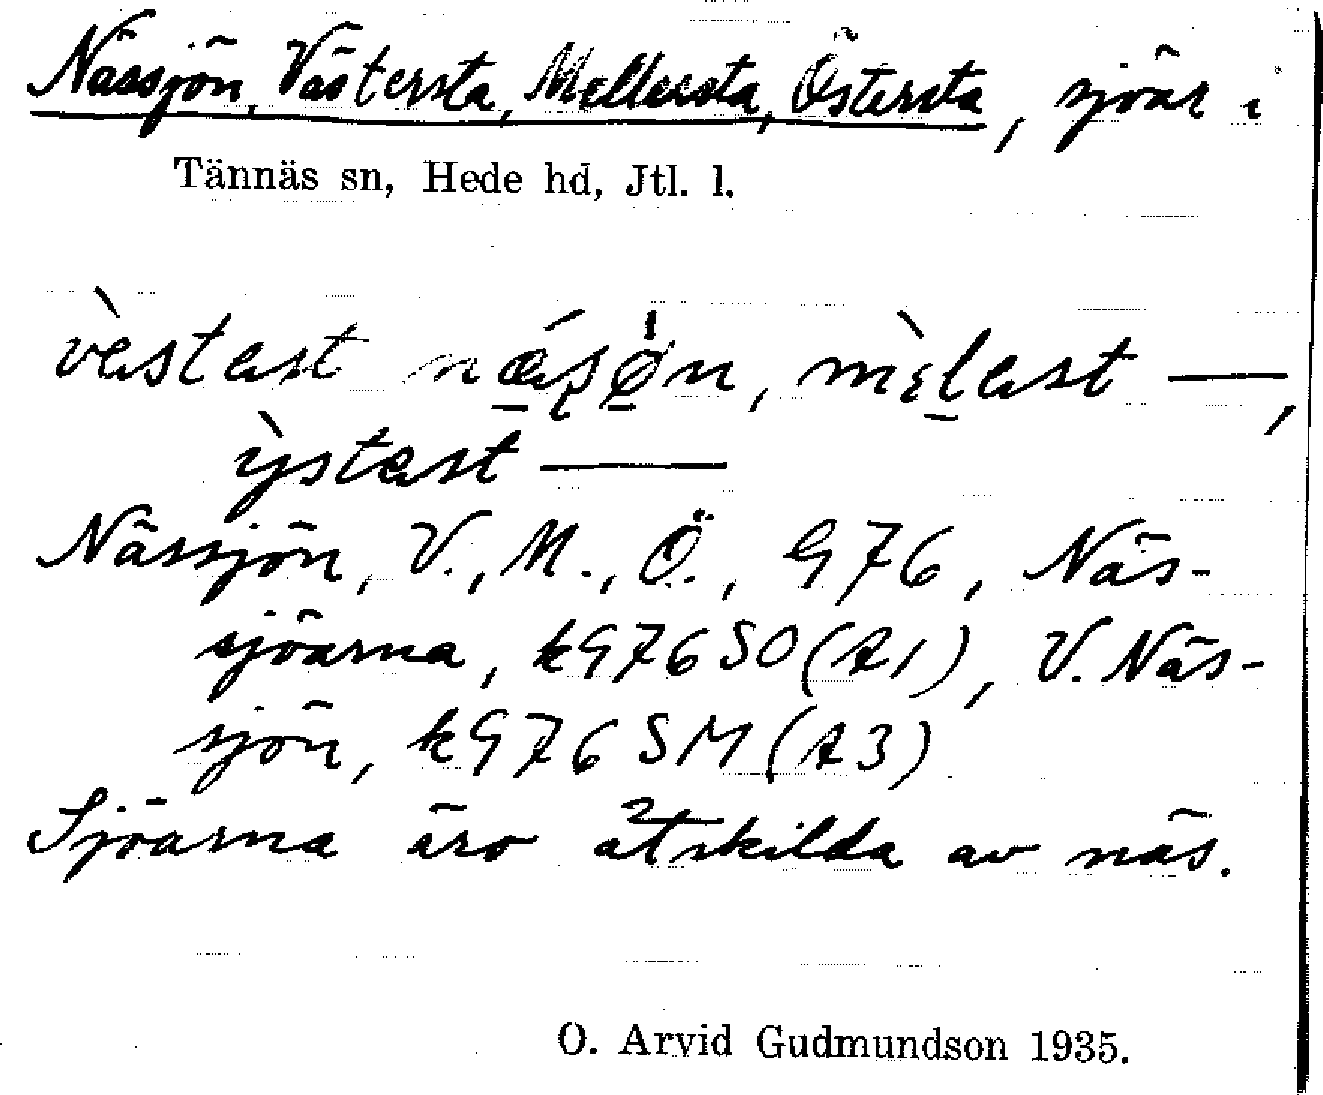 Nässjön, Västersta, Mellersta, Östersta, sjöar i
Tännäs sn, Hede hd, Jtl. l.
vèstast nǽʂø̀n, mὲlast —,
ỳstast —
Nässjön, V., M., Ö., G76, Näs-
sjöarna, kG76SO(A1), V. Näs-
sjön, kG76SM(A3)
Sjöarna äro åtskilda av näs.
O. Arvid Gudmundson 1935.